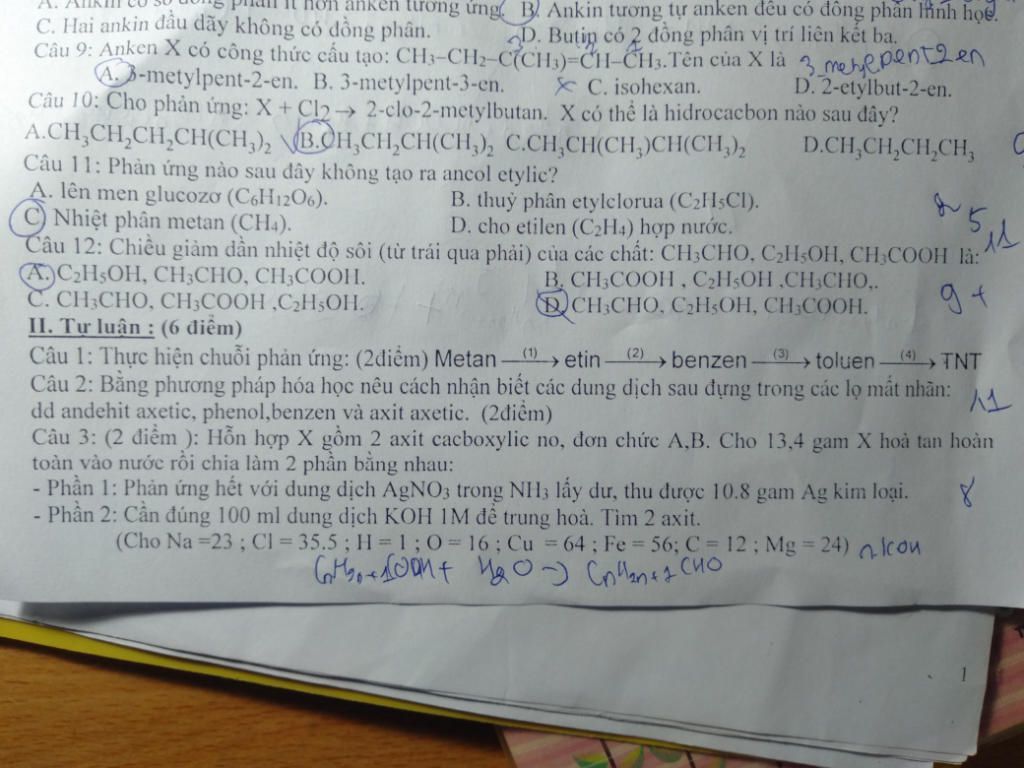 A. Ankin có số đồng phân ít hơn anken tương ứng. B. Ankin tương tự anken đều có đồng phân hình học.
C. Hai ankin đầu dãy không có đồng phân. D. Butin có 2 đồng phân vị trí liên kết ba.
Câu 9: Anken X có công thức cấu tạo: CH₃–CH₂–C(CH₃)=CH–CH₃.Tên của X là 3 metylpent2en
A. 3-metylpent-2-en. B. 3-metylpent-3-en. C. isohexan. D. 2-etylbut-2-en.
Câu 10: Cho phản ứng: X + Cl₂ → 2-clo-2-metylbutan. X có thể là hidrocacbon nào sau đây?
A.CH₃CH₂CH₂CH(CH₃)₂ B.CH₃CH₂CH(CH₃)₂ C.CH₃CH(CH₃)CH(CH₃)₂ D.CH₃CH₂CH₂CH₃
Câu 11: Phản ứng nào sau đây không tạo ra ancol etylic?
A. lên men glucozơ (C₆H₁₂O₆). B. thuỷ phân etylclorua (C₂H₅Cl).
C Nhiệt phân metan (CH₄). D. cho etilen (C₂H₄) hợp nước.
5
Câu 12: Chiều giảm dần nhiệt độ sôi (từ trái qua phải) của các chất: CH₃CHO, C₂H₅OH, CH₃COOH là: 11
A. C₂H₅OH, CH₃CHO, CH₃COOH. B. CH₃COOH , C₂H₅OH ,CH₃CHO,.
C. CH₃CHO, CH₃COOH ,C₂H₅OH. D. CH₃CHO, C₂H₅OH, CH₃COOH. 9 +
II. Tự luận : (6 điểm)
Câu 1: Thực hiện chuỗi phản ứng: (2điểm) Metan —(1)→ etin —(2)→ benzen —(3)→ toluen —(4)→ TNT
Câu 2: Bằng phương pháp hóa học nêu cách nhận biết các dung dịch sau đựng trong các lọ mất nhãn: 11
dd andehit axetic, phenol,benzen và axit axetic. (2điểm)
Câu 3: (2 điểm ): Hỗn hợp X gồm 2 axit cacboxylic no, đơn chức A,B. Cho 13,4 gam X hoà tan hoàn
toàn vào nước rồi chia làm 2 phần bằng nhau:
- Phần 1: Phản ứng hết với dung dịch AgNO₃ trong NH₃ lấy dư, thu được 10.8 gam Ag kim loại. 8
- Phần 2: Cần đúng 100 ml dung dịch KOH 1M để trung hoà. Tìm 2 axit.
(Cho Na =23 ; Cl = 35.5 ; H = 1 ; O = 16 ; Cu = 64 ; Fe = 56; C = 12 ; Mg = 24)
CnH2n+1COOH + H2O → CnH2n+1CHO
1